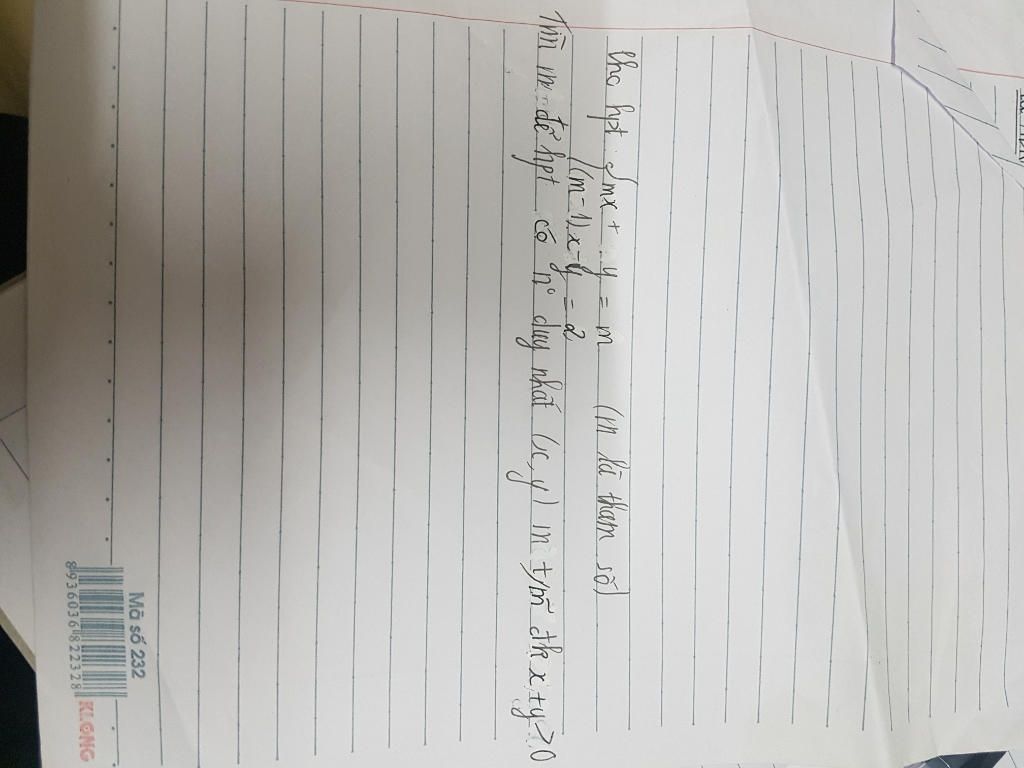 Cho hpt: { mx + y = m (m là tham số)
(m-1)x-y = 2
Tìm m để hpt có n° duy nhất (x,y) t/m đk x+y>0
Mã số 232
8936036 822328
KLONG